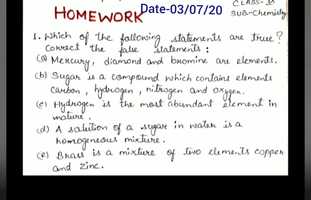 HOMEWORK Date-03/07/20 CLASS-
SUB-Chemistry
1. Which of the following statements are true?
Correct the false statements:
(a) Mercury, diamond and bromine are elements.
(b) Sugar is a compound which contains elements
carbon, hydrogen, nitrogen and oxygen.
(c) Hydrogen is the most abundant element in
nature.
(d) A solution of a sugar in water is a
homogeneous mixture.
(e) Brass is a mixture of two elements copper
and zinc.